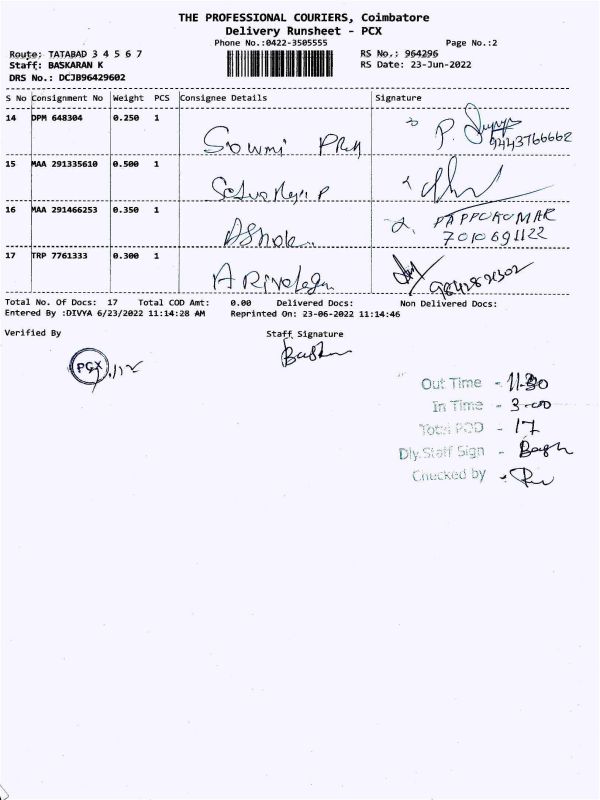 THE PROFESSIONAL COURIERS, Coimbatore
Delivery Runsheet - PCX
Phone No.:0422-3505555 Page No.:2
Route: TATABAD 3 4 5 6 7 RS No.: 964296
Staff: BASKARAN K RS Date: 23-Jun-2022
DRS No.: DCJB96429602
S No Consignment No Weight PCS Consignee Details Signature
14 DPM 648304 0.250 1
Sowmi P. 9443766662
15 MAA 291335610 0.500 1
16 MAA 291466253 0.350 1
Ashok PAPPUKUMAR
7010691122
17 TRP 7761333 0.300 1
Total No. Of Docs: 17 Total COD Amt: 0.00 Delivered Docs: Non Delivered Docs:
Entered By :DIVYA 6/23/2022 11:14:28 AM Reprinted On: 23-06-2022 11:14:46
Verified By Staff Signature
PCX
Out Time - 11.30
In Time - 3-00
Total POD - 17
Dly.Staff Sign -
Checked by -